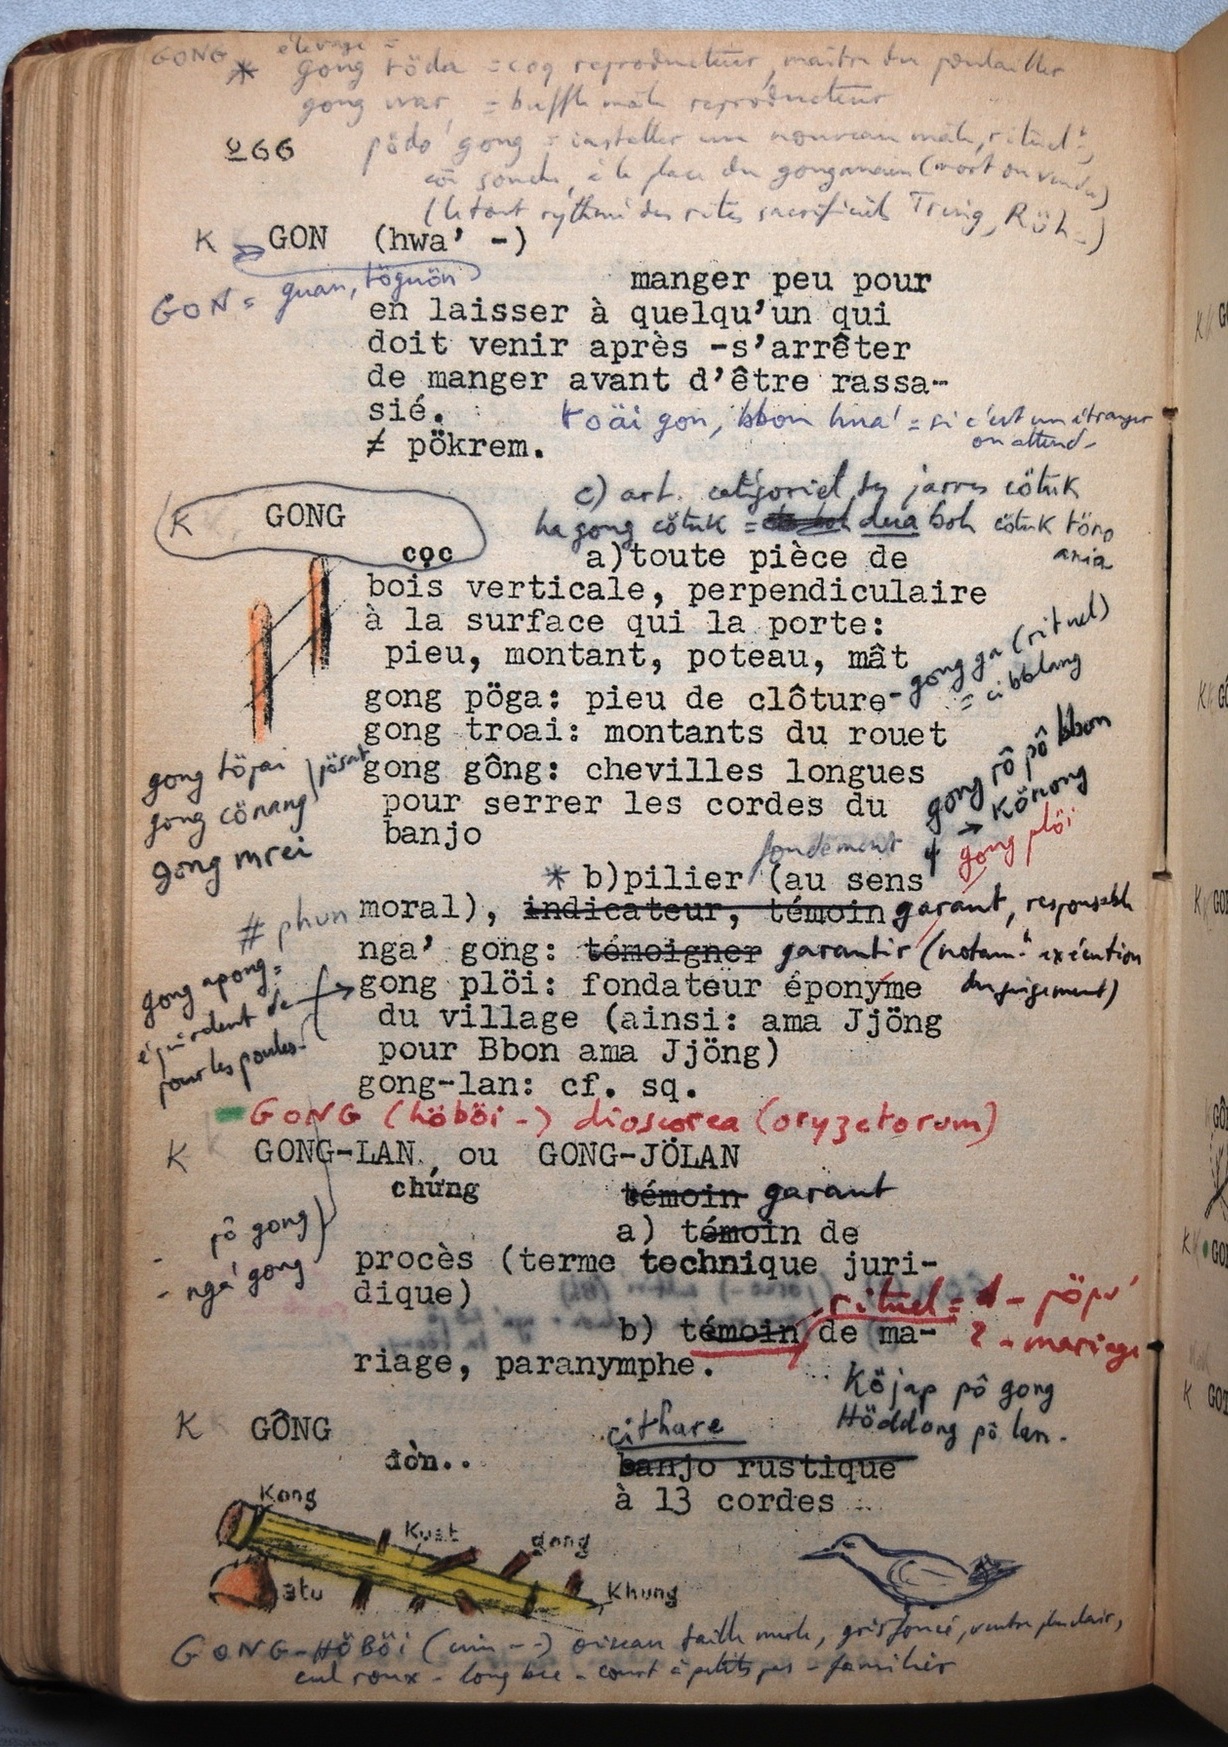 GONG * élevage =
gong töda = coq reproducteur, maître du poulailler
gong war = buffle mâle reproducteur
266
pödo' gong = installer un nouveau mâle, rituel^t,
souche, à la place du (mort ou vendu)
(le tout rythmé des rites sacrificiels Tring, Röh-)
K GON (hwa' -)
GON = guan, töguön
manger peu pour
en laisser à quelqu'un qui
doit venir après -s'arrêter
de manger avant d'être rassa-
sié.
töäi gon, bbon hua' = si c'est un étranger
on attend-
≠ pökrem.
c) art. catégoriel des jarres cötuk
K GONG
ha gong cötuk = dua boh cötuk töno
ania
cọc a)toute pièce de
bois verticale, perpendiculaire
à la surface qui la porte:
pieu, montant, poteau, mât
gong pöga: pieu de clôture- gong ga (rituel)
= cibblang
gong troai: montants du rouet
gong töjai
gong cönang ) jösat
gong mrei
gong gông: chevilles longues
pour serrer les cordes du
banjo
gong rô pô bbon
→ Könong
gong plöi
fondement
* b)pilier (au sens
# phun
moral), indicateur, témoin garant, responsable
nga' gong: témoigner garantir (notam^t exécution
du jugement)
gong apong =
équivalent de
pour les poules-
gong plöi: fondateur éponyme
du village (ainsi: ama Jjöng
pour Bbon ama Jjöng)
gong-lan: cf. sq.
GONG (höböi -) dioscorea (oryzetorum)
K GONG-LAN, ou GONG-JÖLAN
chứng témoin garant
a) témoin de
- pô gong
- nga' gong
procès (terme technique juri-
dique)
rituel = 1 - pöpu'
2 - mariage
b) témoin de ma-
riage, paranymphe.
Köjap pô gong
Höddong pô lan.
K GÔNG
cithare
đờn.. banjo rustique
à 13 cordes
Kong
Kuat
gong
atu
Khung
GONG-HÖBÖI (cim --) oiseau taille merle, gris foncé, ventre plus clair,
cul roux - long bec - court à petits pas - familier